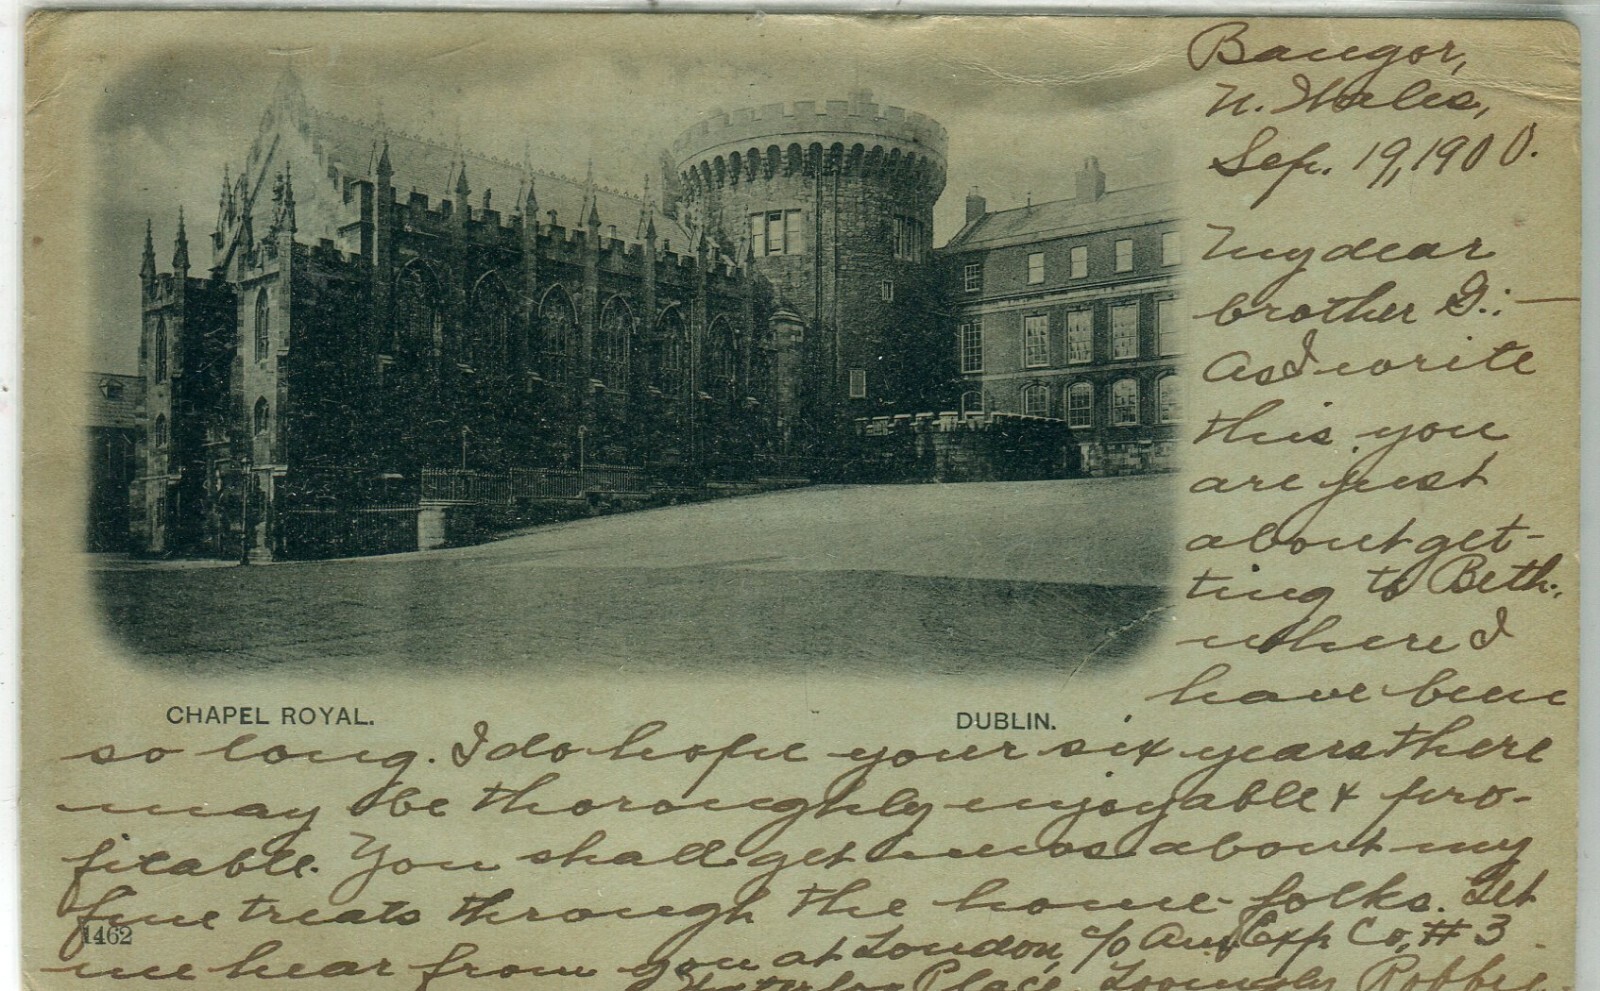 Bangor,
N. Wales,
Sep. 19, 1900.
My dear
brother G.:—
As I write
this you
are just
about get-
ting to Beth.,
where I
have been
CHAPEL ROYAL.
DUBLIN.
so long. I do hope your six years there
may be thoroughly enjoyable & pro-
fitable. You shall get news about my
fine treats through the home-folks. Let
1462
me hear from you at London, c/o Am Exp Co, # 3
Waterloo Place. Lovingly Robbie.